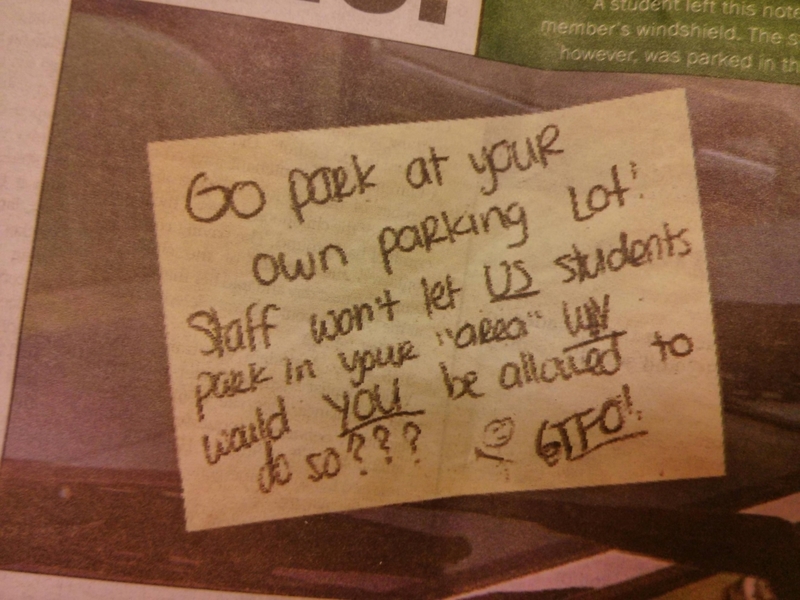 A student left this note
member's windshield. The s
however, was parked in th
Go park at your
own parking Lot!
Staff won't let US students
park in your "area" WHY
would YOU be allowed to
do so??? GTFO!